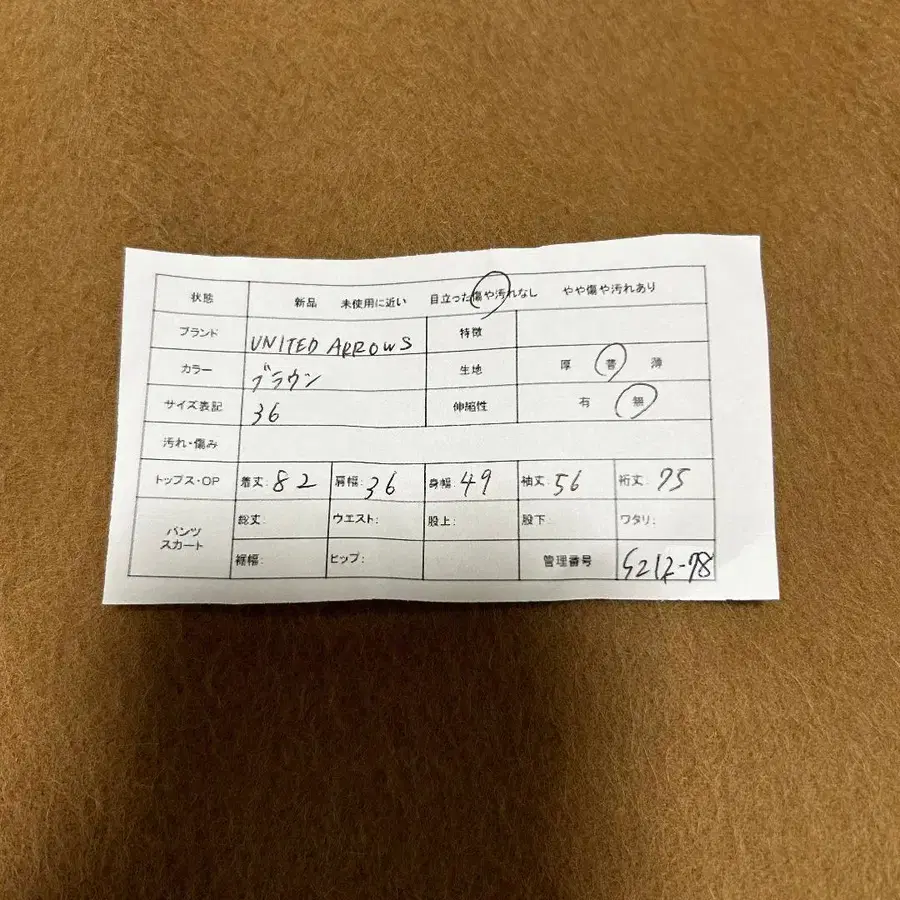 状態 新品 未使用に近い 目立った傷や汚れなし やや傷や汚れあり
ブランド UNITED ARROWS 特徴
カラー ブラウン 生地 厚 普 薄
サイズ表記 36 伸縮性 有 無
汚れ・傷み
トップス・OP 着丈: 82 肩幅: 36 身幅: 49 袖丈: 56 裄丈: 75
パンツ
スカート
総丈: ウエスト: 股上: 股下: ワタリ:
裾幅: ヒップ: 管理番号 S212-78